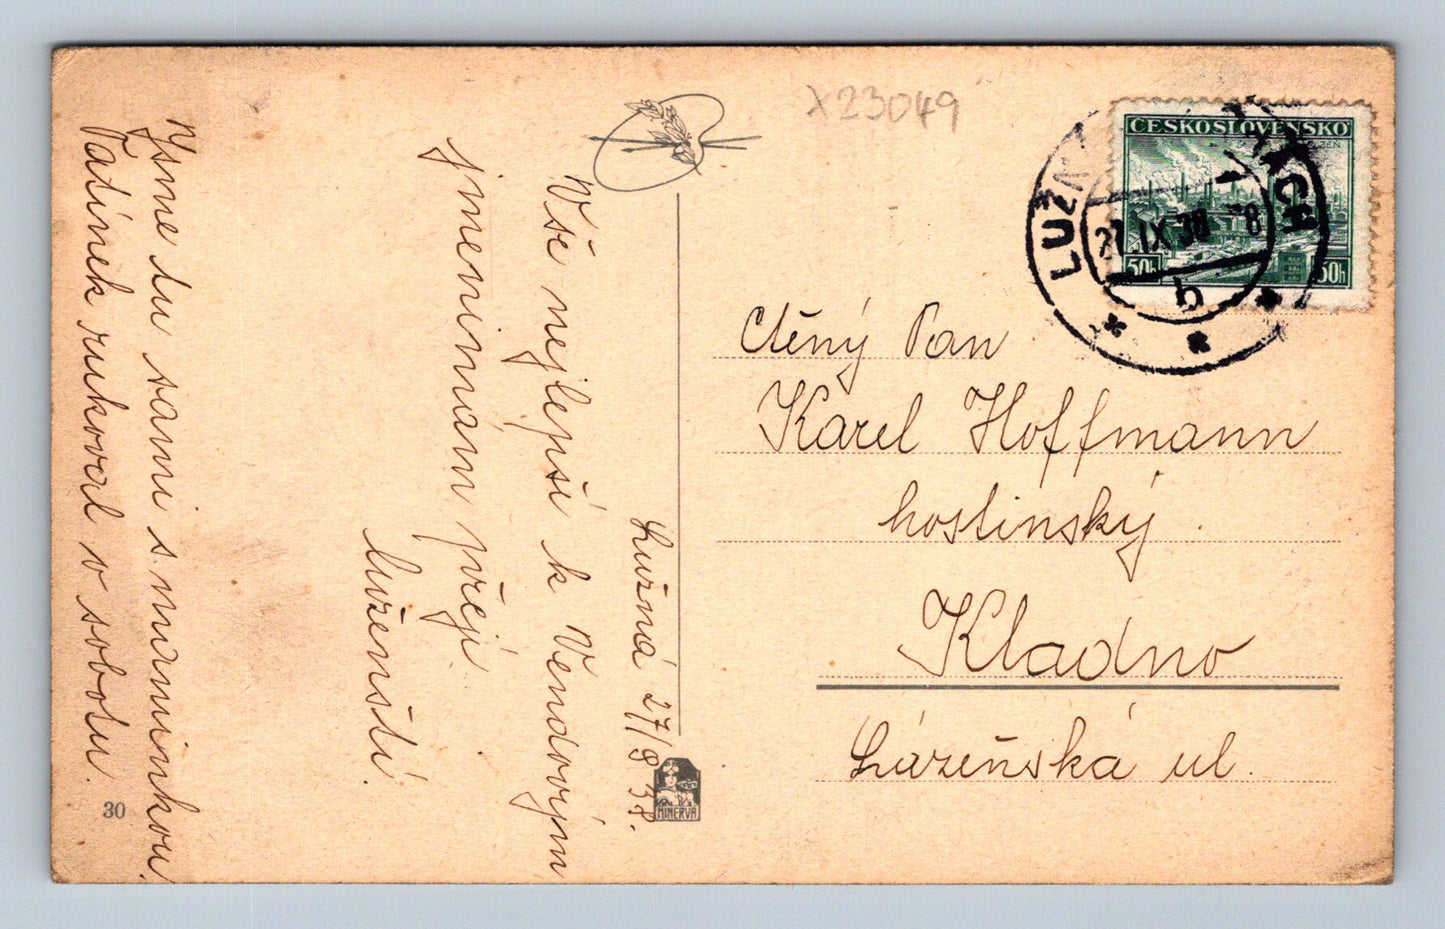 X23049
ČESKOSLOVENSKO
PLZEŇ
50h
50h
LUŽNÁ
27.IX.38-8
b
Lužná 27/9 38.
Vše nejlepší k Vendovým
jmeninám přejí
luženští.
Jsme tu sami s maminkou.
Tatínek rukoval v sobotu.
30
MINERVA
Ctěný Pan
Karel Hoffmann
hostinský.
Kladno
Lázeňská ul.